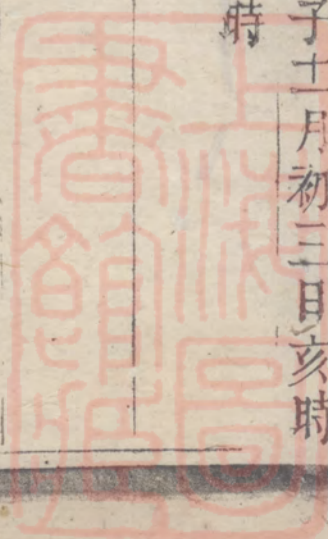 子十一月初三日亥時
時
上海圖
書館藏